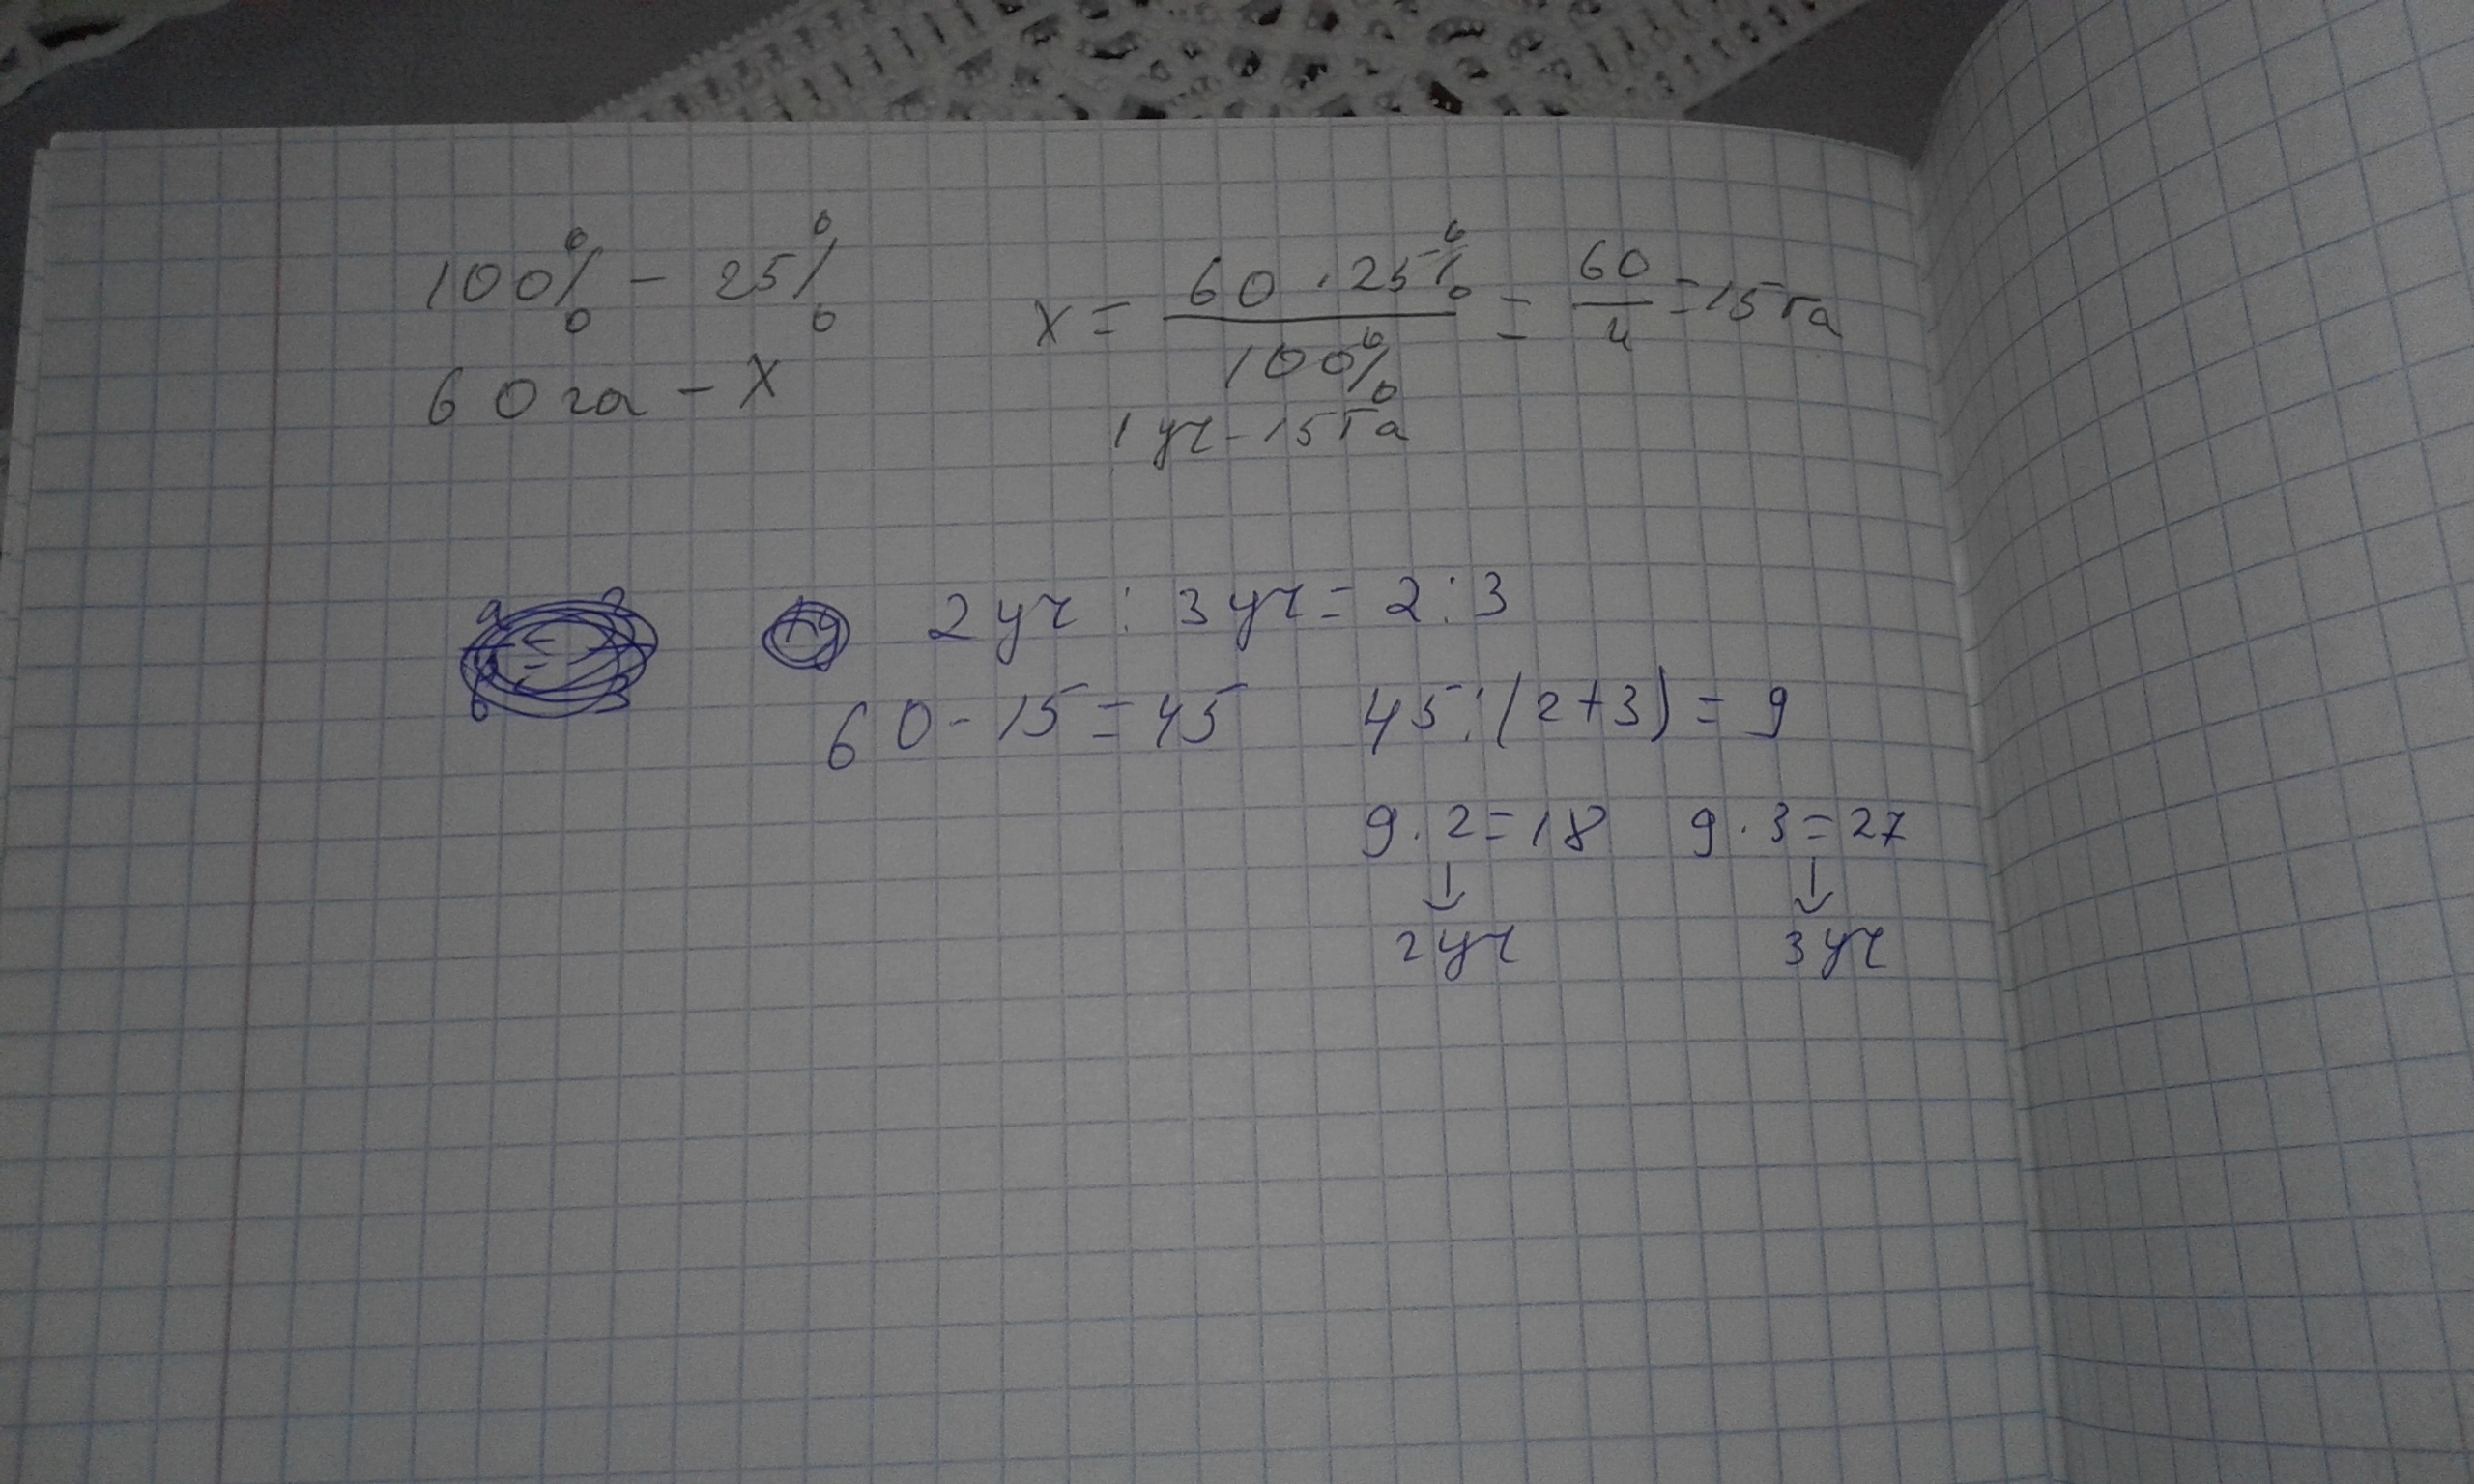 100% - 25%
60 га - X
X = 60 · 25% / 100% = 60 / 4 = 15 га
1 уч - 15 га
2 уч : 3 уч = 2 : 3
60 - 15 = 45 45 : (2+3) = 9
9 · 2 = 18 9 · 3 = 27
↓ ↓
2 уч 3 уч